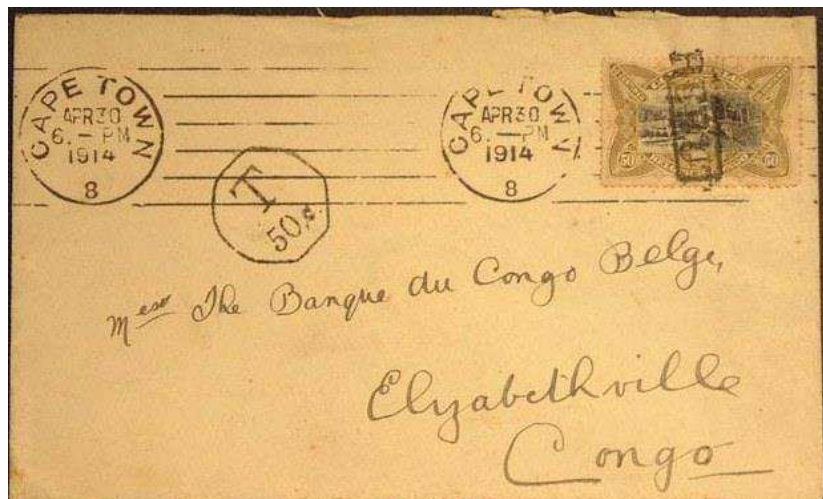 CAPE TOWN
APR 30
6. — PM
1914
8
CAPE TOWN
APR 30
6. — PM
1914
8
T
50 c.
50
50
Mess The Banque du Congo Belge,
Elyzabethville
Congo